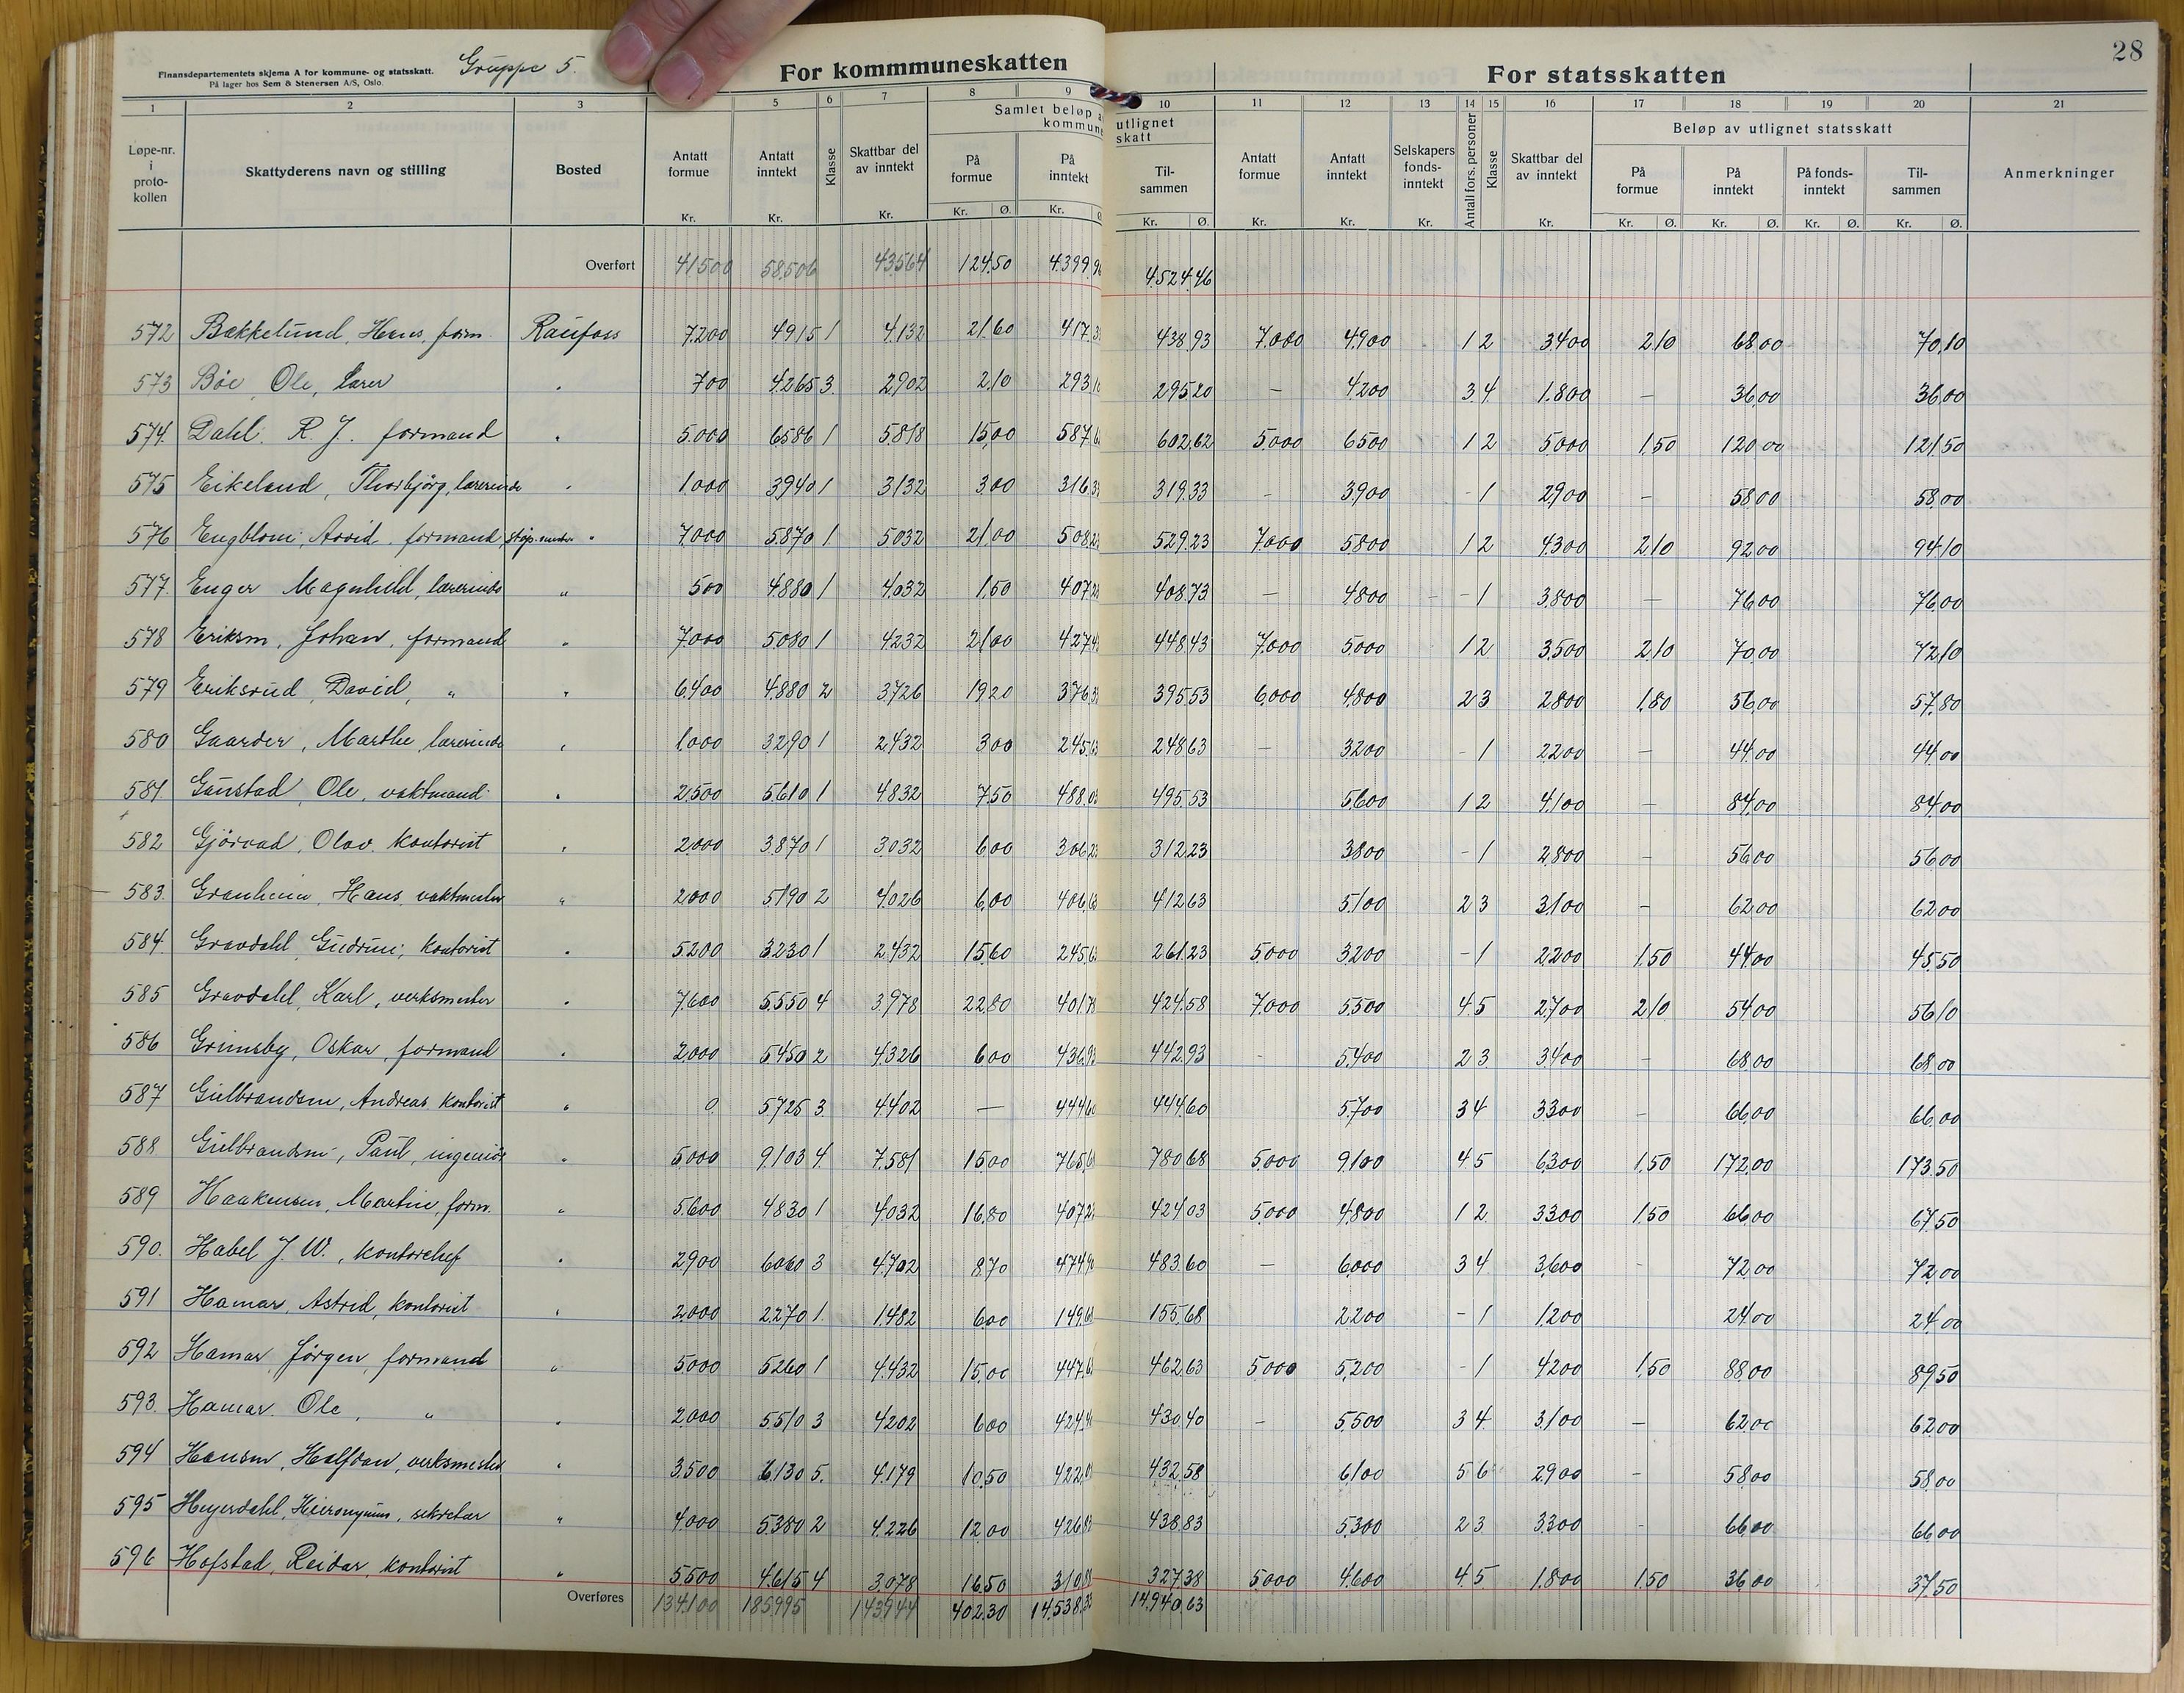 Finansdepartementets skjema A for kommune- og statsskatt. Gruppe 5. For kommmuneskatten For statsskatten 28
På lager hos Sem & Stenersen A/S, Oslo.
1 2 3 5 6 7 8 9 10 11 12 13 14 15 16 17 18 19 20 21
Samlet beløp a utlignet Beløp av utlignet statsskatt
kommune skatt
Løpe-nr. i proto-kollen Skattyderens navn og stilling Bosted Antatt formue Kr. Antatt inntekt Kr. Klasse Skattbar del av inntekt Kr. På formue Kr. Ø. På inntekt Kr. Ø. Til-sammen Kr. Ø. Antatt formue Kr. Antatt inntekt Kr. Selskapers fonds-inntekt Kr. Antall fors. personer Klasse Skattbar del av inntekt Kr. På formue Kr. Ø. På inntekt Kr. Ø. På fonds-inntekt Kr. Ø. Til-sammen Kr. Ø. Anmerkninger
Overført 41500 58.506 43.564 124.50 4.399,96 4.524,46
572 Bækkelund, Hans, form. Raufoss 7.200 4.915 1 4.132 21.60 417,3 438,93 7.000 4.900 1 2 3.400 2,10 68,00 70,10
573 Bøe, Ole, lærer " 700 4.265 3 2.902 2,10 293,10 295,20 — 4.200 3 4 1.800 — 36,00 36,00
574 Dahl, R. J. formand " 5.000 6586 1 5818 15,00 587,6 602,62 5.000 6500 1 2 5.000 1,50 120,00 121,50
575 Eikeland, Thorbjørg, lærerinde " 1.000 3940 1 3132 3,00 316,33 319,33 - 3.900 - 1 2.900 — 58,00 58,00
576 Engblom, Arvid, formand, " 7.000 5.870 1 5.032 21,00 508,2 529,23 7.000 5800 1 2 4.300 2,10 92,00 94,10
577 Enger Magnhild, lærerinde " 500 4.880 1 4.032 1,50 407,2 408,73 — 4800 - - 1 3.800 — 76,00 76,00
578 Eriksen, Johan, formand " 7.000 5.080 1 4.232 21,00 427,4 448,43 7.000 5.000 1 2 3.500 2,10 70,00 72,10
579 Eriksrud, David, " " 6.400 4.880 2 3.726 19,20 376,3 395,53 6.000 4.800 2 3 2.800 1,80 56,00 57,80
580 Gaarder, Marthe, lærerinde " 1.000 3.290 1 2.432 3,00 245,63 248,63 — 3.200 - 1 2.200 — 44,00 44,00
581 Gaustad, Ole, vaktmand " 2.500 5.610 1 4.832 7,50 488,0 495,53 5.600 1 2 4.100 — 84,00 84,00
582 Gjørvad, Olav, kontorist " 2.000 3.870 1 3.032 6,00 306,2 312,23 3.800 - 1 2.800 - 56,00 56,00
583 Granheim, Hans, vaktmester " 2.000 5.190 2 4.026 6,00 406,6 412,63 5.100 2 3 3.100 - 62,00 62,00
584 Gravdahl, Gudrun, kontorist " 5.200 3.230 1 2.432 15,60 245,6 261,23 5.000 3.200 - 1 2.200 1,50 44,00 45,50
585 Gravdahl, Karl, verksmester " 7.600 5.550 4 3.978 22,80 401,78 424,58 7.000 5.500 4 5 2.700 2,10 54,00 56,10
586 Grimsby, Oskar, formand " 2.000 5450 2 4.326 6,00 436,93 442,93 - 5.400 2 3 3.400 - 68,00 68,00
587 Gulbrandsen, Andreas kontorist " 0 5.725 3 4.402 — 444,60 444,60 5.700 3 4 3.300 - 66,00 66,00
588 Gulbrandsen, Paul, ingeniør " 5.000 9.103 4 7.581 15,00 765,6 780,68 5.000 9.100 4 5 6.300 1,50 172,00 173,50
589 Haakensen, Martin, form. " 5.600 4.830 1 4.032 16,80 407,2 424,03 5.000 4.800 1 2 3.300 1,50 66,00 67,50
590 Habel J. W., kontorchef " 2.900 6.060 3 4.702 8,70 474,90 483,60 — 6.000 3 4 3.600 - 72,00 72,00
591 Hamar, Astrid, kontorist " 2.000 2.270 1 1.482 6,00 149,68 155,68 2.200 - 1 1.200 24,00 24,00
592 Hamar, Jørgen, formand " 5.000 5.260 1 4.432 15,00 447,6 462,63 5.000 5,200 - 1 4.200 1,50 88,00 89,50
593 Hamar, Ole, " " 2.000 5.510 3 4.202 6,00 424,4 430,40 - 5.500 3 4 3.100 — 62,00 62,00
594 Hansen, Halfdan, verksmester " 3.500 6.130 5 4.179 10,50 422,0 432,58 6.100 5 6 2.900 - 58,00 58,00
595 Heyerdahl, Hieronymus, sekretær " 4.000 5.380 2 4.226 12,00 426,83 438,83 5.300 2 3 3.300 - 66,00 66,00
596 Hofstad, Reidar, kontorist " 5.500 4.615 4 3.078 16,50 310,88 327,38 5.000 4.600 4 5 1.800 1,50 36,00 37,50
Overføres 134.100 185.995 143.944 402.30 14.538,33 14.940,63